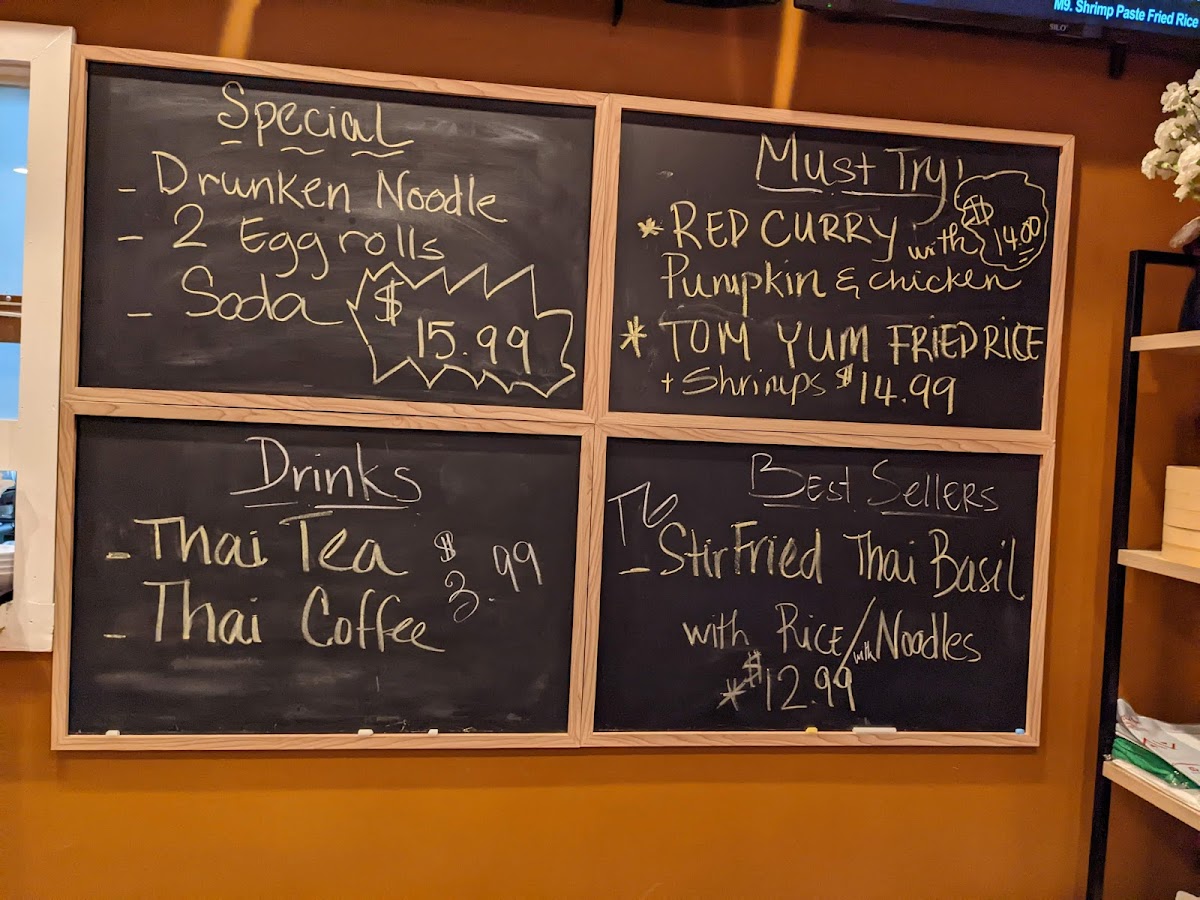 M9. Shrimp Paste Fried Rice
Special
- Drunken Noodle
- 2 Egg rolls
- Soda
$ 15.99
Must Try!
* RED CURRY with $ 14.00
Pumpkin & chicken
* TOM YUM FRIED RICE
+ Shrimps $14.99
Drinks
- Thai Tea $ 3.99
- Thai Coffee
Best Sellers
- Stir Fried Thai Basil
with Rice/with Noodles
* $12.99